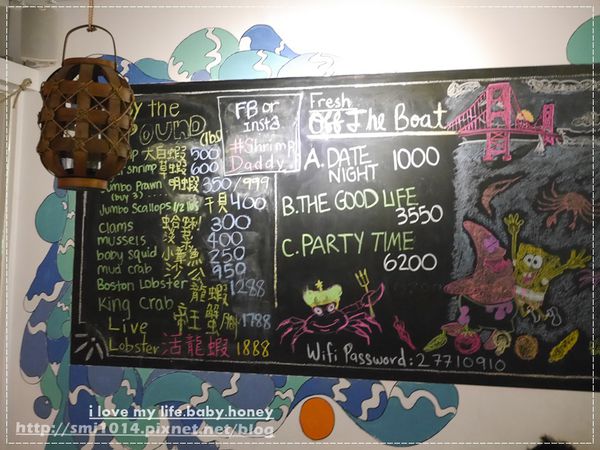 y the
Pound (lbs)
FB or
Insta
#Shrimp
Daddy
大白蝦 500
shrimp 草蝦 600
Jumbo Prawn 明蝦 350/999
(buy 3)
Jumbo Scallops 1/2 lbs 干貝 400
Clams 蛤蜊 300
mussels 淡菜 400
baby squid 小章魚 250
mud crab 沙公 950
Boston Lobster 龍蝦 1288
King Crab 帝王蟹腳 1788
Live
Lobster 活龍蝦 1888
Fresh
Off The Boat
A. DATE NIGHT 1000
B. THE GOOD LIFE
3550
C. PARTY TIME
6200
Wifi Password: 27710910
i love my life.baby.honey
http://smi1014.pixnet.net/blog